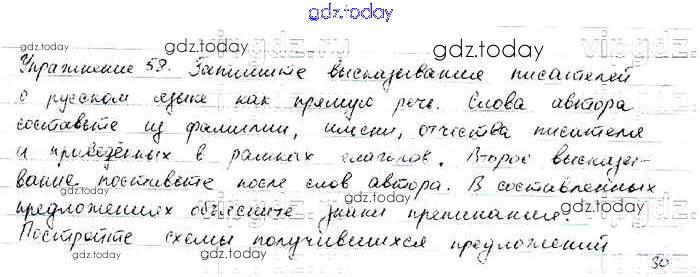 gdz.today
gdz.today gdz.today gdz.today
Упражнение 58. Запишите высказывания писателей
о русском языке как прямую речь. Слова автора
gdz.today gdz.today gdz.today
составьте из фамилии, имени, отчества писателя
и приведённых в рамках глаголов. Второе высказы-
вание поставьте после слов автора. В составленных
gdz.today gdz.today gdz.today
предложениях объясните знаки препинания.
Постройте схемы получившихся предложений
gdz.today gdz.today
30